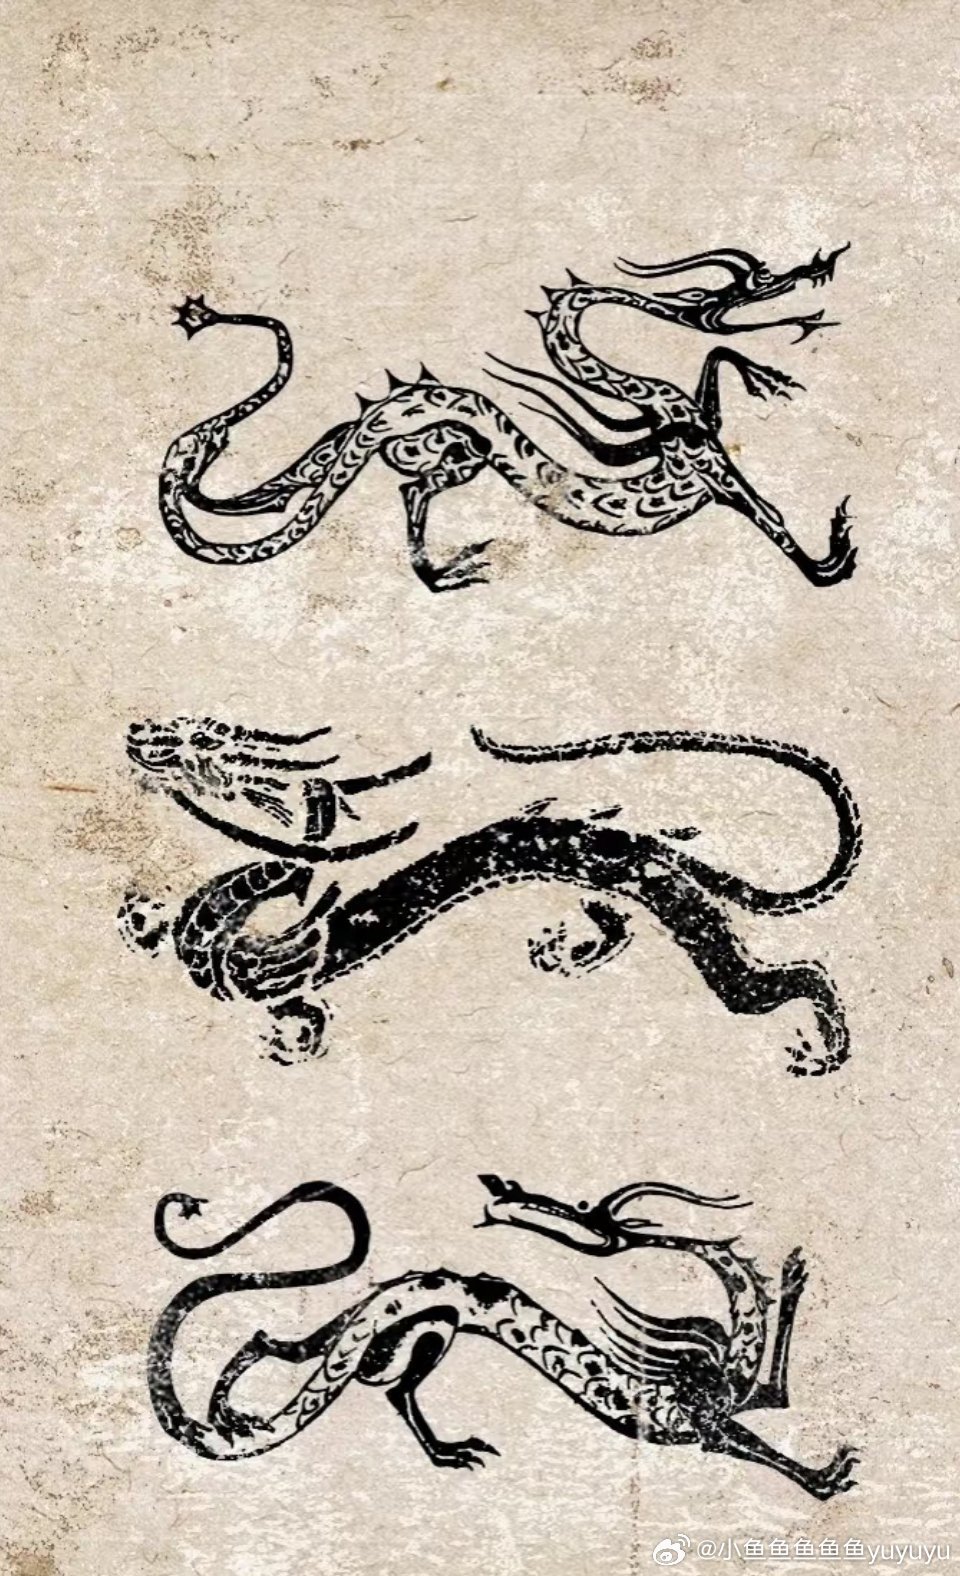 @小鱼鱼鱼鱼鱼yuyuyu